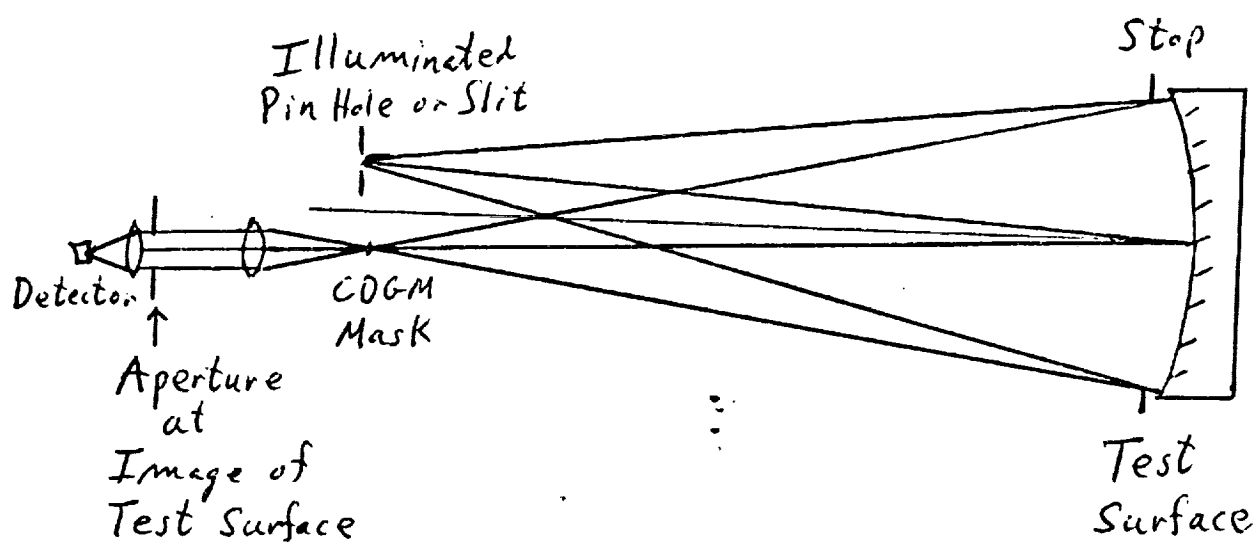 Stop
Illuminated
Pin Hole or Slit
Detector
COGM
Mask
Aperture
at
Image of
Test Surface
Test
Surface